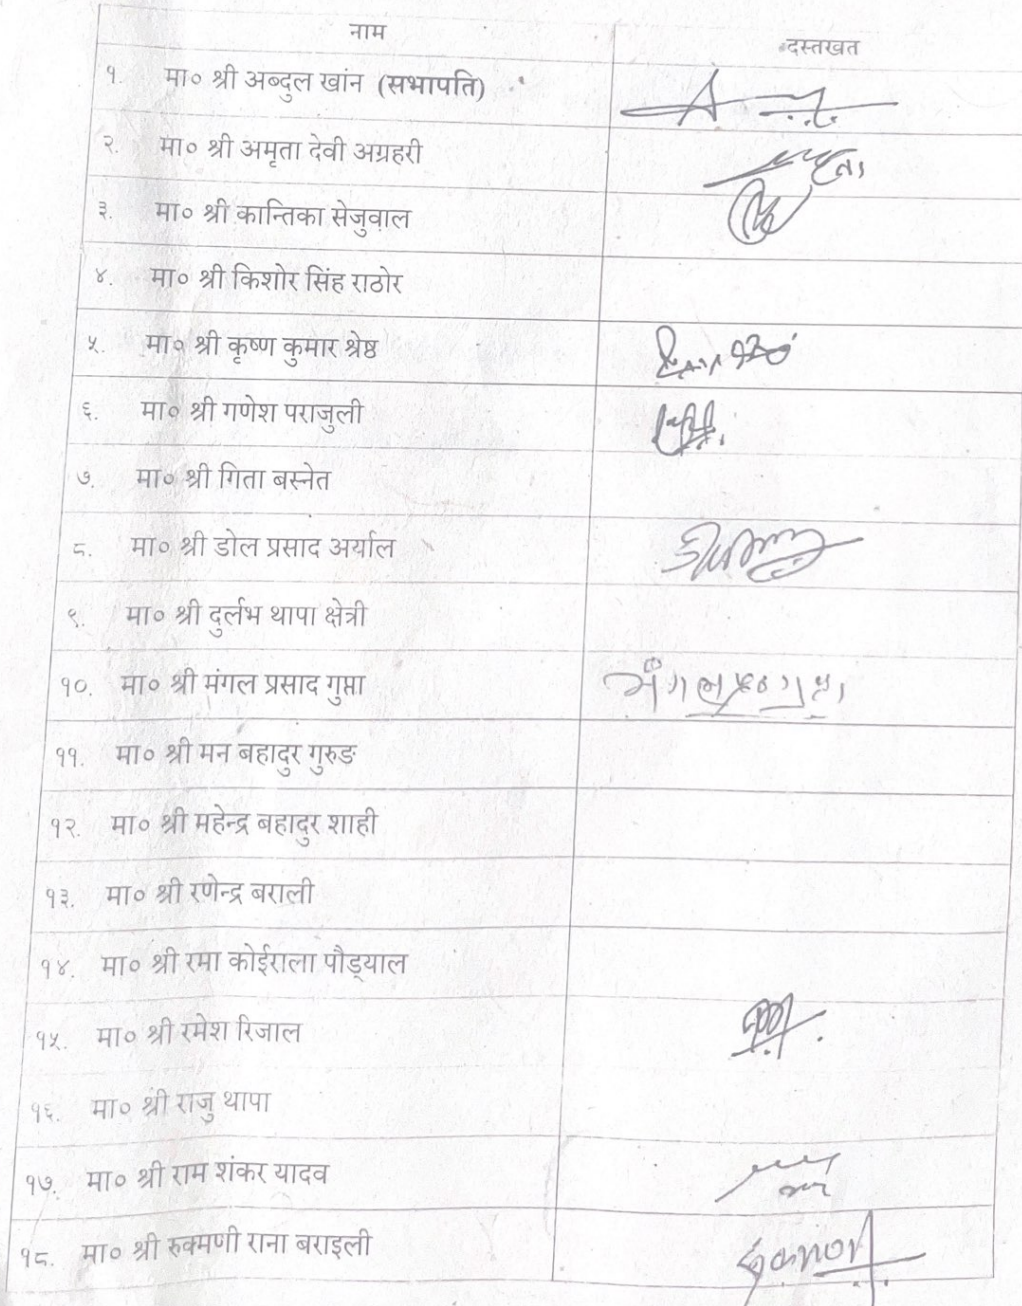 नाम
दस्तखत
१. मा० श्री अब्दुल खांन (सभापति)
२. मा० श्री अमृता देवी अग्रहरी
३. मा० श्री कान्तिका सेजुवाल
४. मा० श्री किशोर सिंह राठोर
५. मा० श्री कृष्ण कुमार श्रेष्ठ
६. मा० श्री गणेश पराजुली
७. मा० श्री गिता बस्नेत
८. मा० श्री डोल प्रसाद अर्याल
९. मा० श्री दुर्लभ थापा क्षेत्री
१०. मा० श्री मंगल प्रसाद गुप्ता
११. मा० श्री मन बहादुर गुरुङ
१२. मा० श्री महेन्द्र बहादुर शाही
१३. मा० श्री रणेन्द्र बराली
१४. मा० श्री रमा कोईराला पौड्याल
१५. मा० श्री रमेश रिजाल
१६. मा० श्री राजु थापा
१७. मा० श्री राम शंकर यादव
१८. मा० श्री रुक्मणी राना बराइली